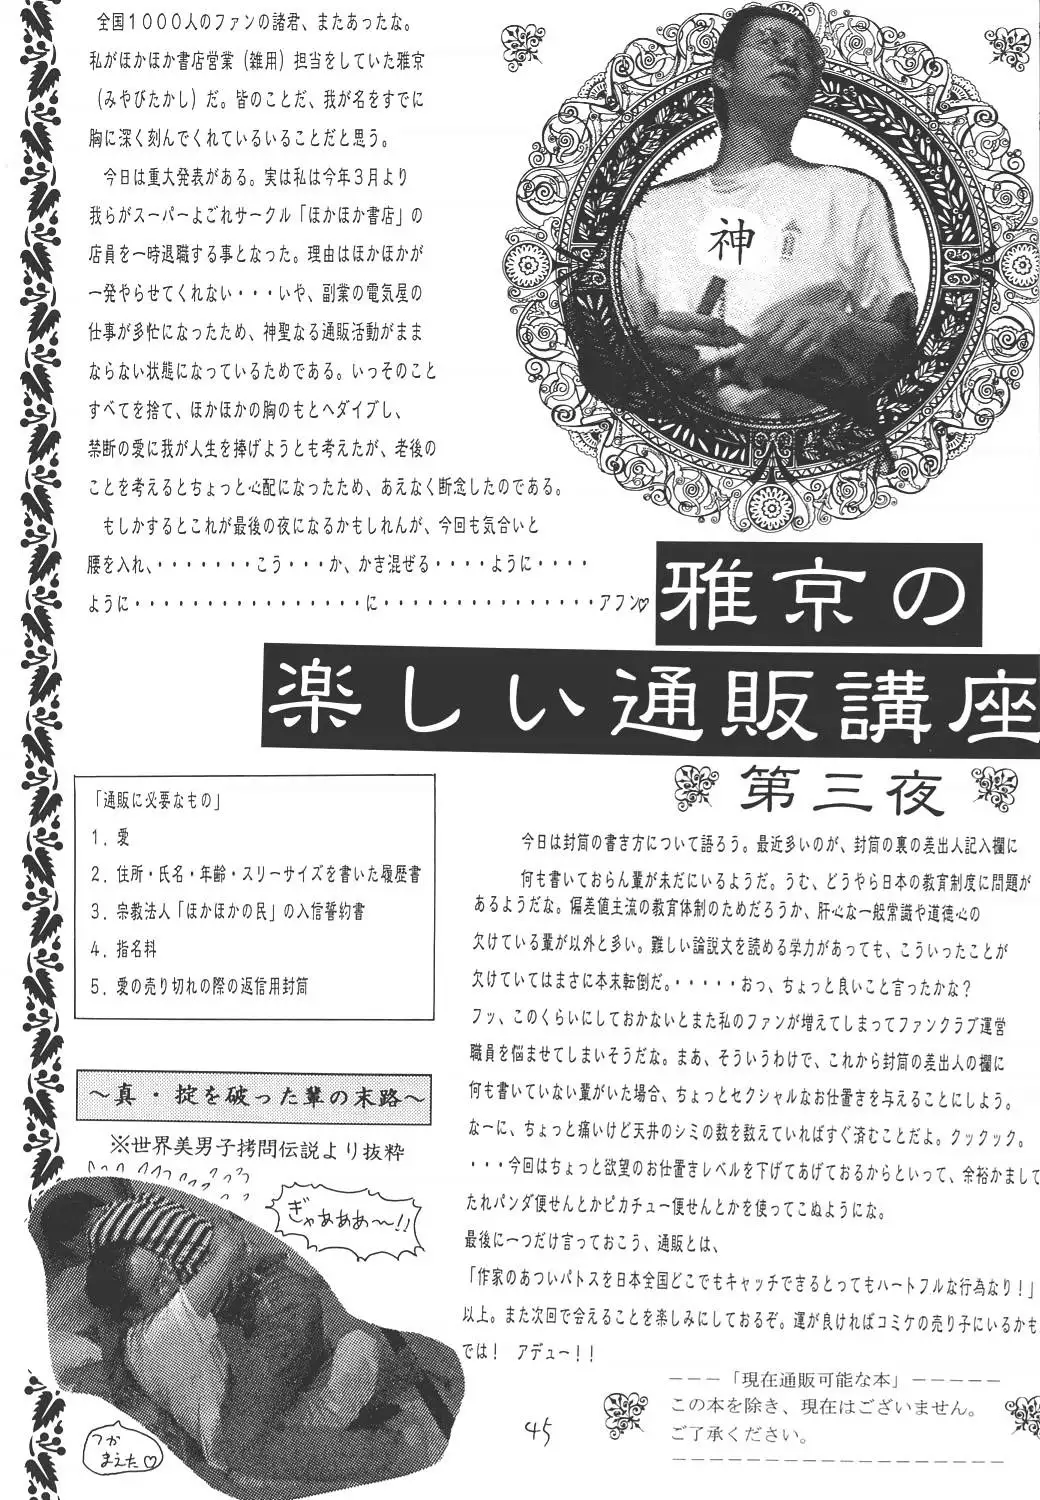 全国1000人のファンの諸君、またあったな。
私がほかほか書店営業（雑用）担当をしていた雅京
（みやびたかし）だ。皆のことだ、我が名をすでに
胸に深く刻んでくれているいることだと思う。
今日は重大発表がある。実は私は今年3月より
我らがスーパーよごれサークル「ほかほか書店」の
店員を一時退職する事となった。理由はほかほかが
一発やらせてくれない・・・いや、副業の電気屋の
仕事が多忙になったため、神聖なる通販活動がまま
ならない状態になっているためである。いっそのこと
すべてを捨て、ほかほかの胸のもとへダイブし、
禁断の愛に我が人生を捧げようとも考えたが、老後の
ことを考えるとちょっと心配になったため、あえなく断念したのである。
もしかするとこれが最後の夜になるかもしれんが、今回も気合いと
腰を入れ、・・・・・・・こう・・・か、かき混ぜる・・・・ように・・・・
ように・・・・・・・・・・・・・・・・に・・・・・・・・・・・・・・・アフン♡
神
雅京の
楽しい通販講座
第三夜
「通販に必要なもの」
1．愛
2．住所・氏名・年齢・スリーサイズを書いた履歴書
3．宗教法人「ほかほかの民」の入信誓約書
4．指名料
5．愛の売り切れの際の返信用封筒
今日は封筒の書き方について語ろう。最近多いのが、封筒の裏の差出人記入欄に
何も書いておらん輩が未だにいるようだ。うむ、どうやら日本の教育制度に問題が
あるようだな。偏差値主流の教育体制のためだろうか、肝心な一般常識や道徳心の
欠けている輩が以外と多い。難しい論説文を読める学力があっても、こういったことが
欠けていてはまさに本末転倒だ。・・・・・おっ、ちょっと良いこと言ったかな？
フッ、このくらいにしておかないとまた私のファンが増えてしまってファンクラブ運営
職員を悩ませてしまいそうだな。まあ、そういうわけで、これから封筒の差出人の欄に
何も書いていない輩がいた場合、ちょっとセクシャルなお仕置きを与えることにしよう。
なーに、ちょっと痛いけど天井のシミの数を数えていればすぐ済むことだよ。クックック。
・・・今回はちょっと欲望のお仕置きレベルを下げてあげておるからといって、余裕かまして
たれパンダ便せんとかピカチュー便せんとかを使ってこぬようにな。
最後に一つだけ言っておこう、通販とは、
「作家のあついパトスを日本全国どこでもキャッチできるとってもハートフルな行為なり！」
以上。また次回で会えることを楽しみにしておるぞ。運が良ければコミケの売り子にいるかも
では！　アデュー！！
～真・掟を破った輩の末路～
※世界美男子拷問伝説より抜粋
ぎゃあああ～!!
つか
まえた♡
－－－「現在通販可能な本」－－－－－
この本を除き、現在はございません。
ご了承ください。
－－－－－－－－－－－－－－－－－－
45